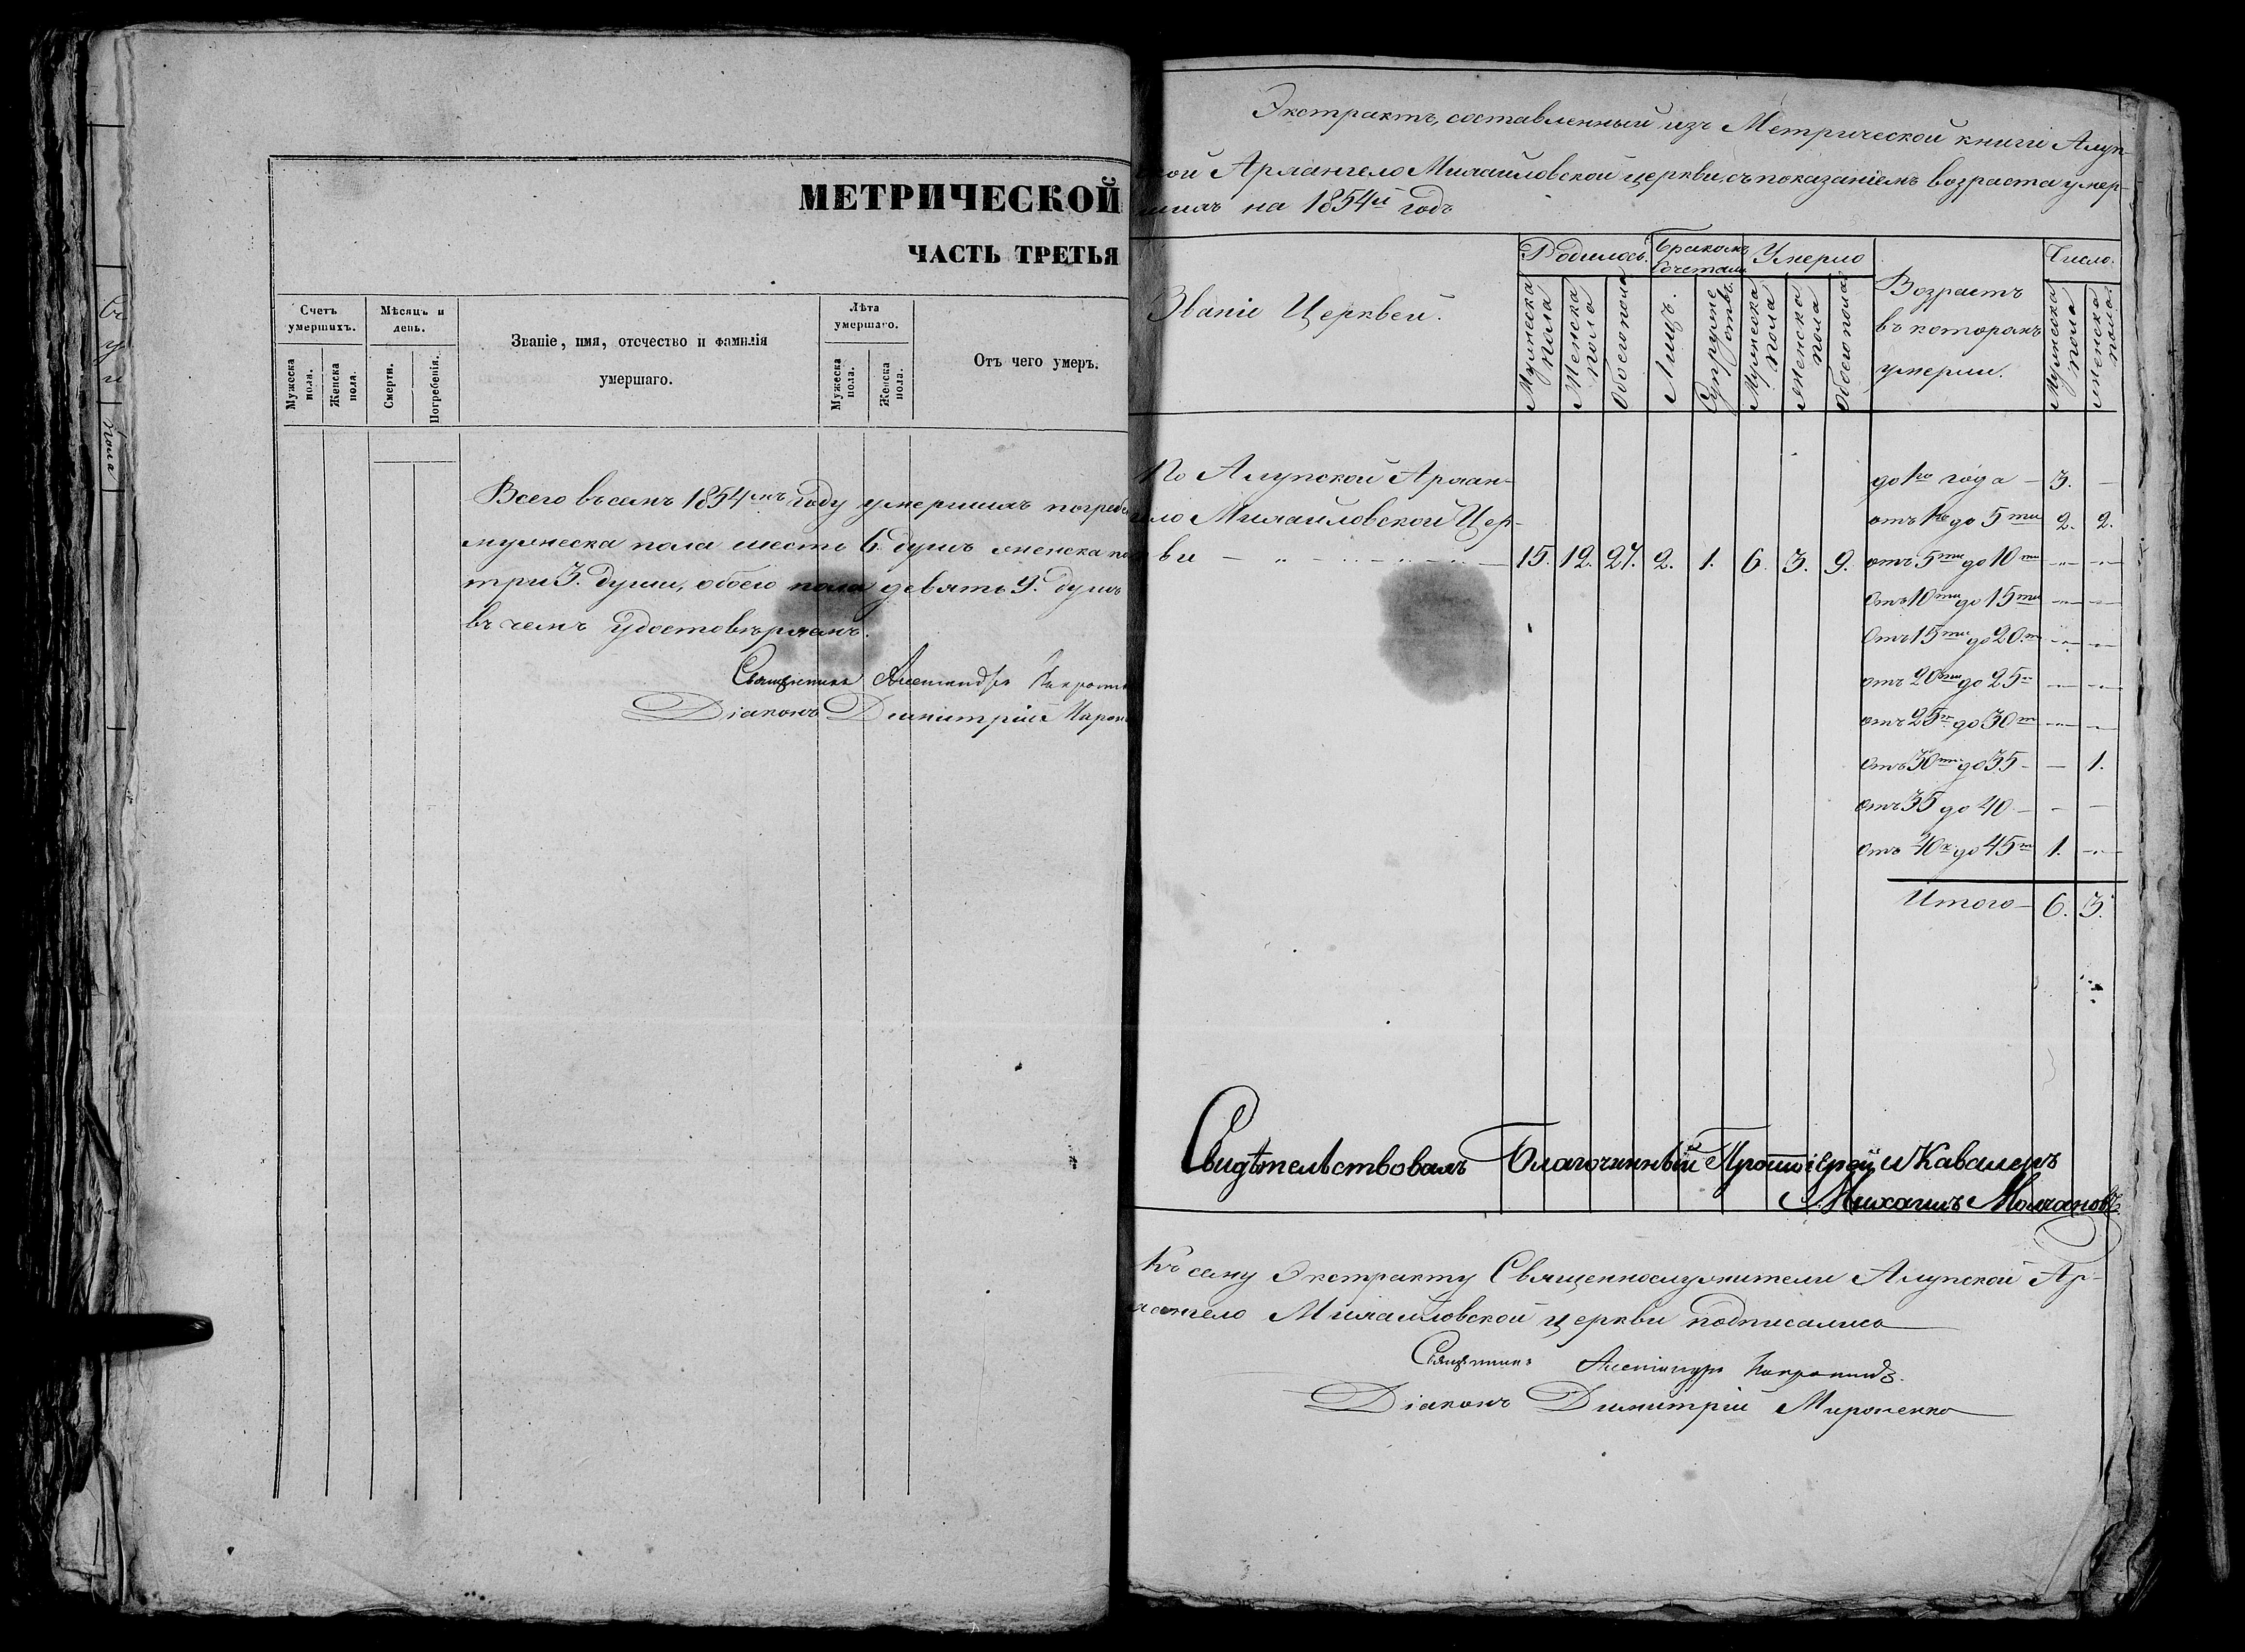 МЕТРИЧЕСКОЙ
ЧАСТЬ ТРЕТЬЯ
Счетъ умершихъ.
Мужеска пола.
Женска пола.
Мѣсяцъ и день.
Смерти.
Погребенія.
Званіе, имя, отечество и фамилія
умершаго.
Лѣта умершаго.
Мужеска пола.
Женска пола.
Отъ чего умеръ.
Всего въ семъ 1854мъ году умершихъ погребе
мужеска пола шесть 6. душъ женска по
три 3. души, обоего пола девять 9. душъ
въ чемъ удостовѣряемъ.
Священникъ Александръ
Діаконъ Димитрій Мирон
пола
Экстрактъ, составленный изъ Метрической книги Алуп-
кой Архангело Михаиловской церкви, съ показаніемъ возраста умер-
шихъ на 1854й годъ
Званіе Церквей.
Родилось.
Мужеска пола
Женска пола
Обоего пола
Бракомъ сочетали
Лицъ.
Супружествъ.
Умерло
Мужеска пола
женска пола
Обоего пола
Возрастъ
въ которомъ
умерли.
Число.
Мужеска пола
женска пола
По Алупской Архан-
гело Михаиловской Цер-
кви — „ — 15. 12. 27. 2. 1. 6. 3. 9.
до 1го года — 3. —
отъ 1го до 5ти 2. 2.
отъ 5ти до 10ти — —
отъ 10ти до 15ти — —
отъ 15ти до 20ти — —
отъ 20ти до 25ти — —
отъ 25ти до 30ти — —
отъ 30ти до 35 — — 1.
отъ 35 до 40 — — —
отъ 40ка до 45ти 1. —
Итого — 6. 3.
Свидѣтельствовалъ Благочинный Протоіерей и Кавалеръ
Михаилъ Молчановъ
Къ сему Экстракту Священнослужители Алупской Ар-
хангело Михаиловской церкви подписались
Священникъ Александръ
Діаконъ Димитрій Мироненко